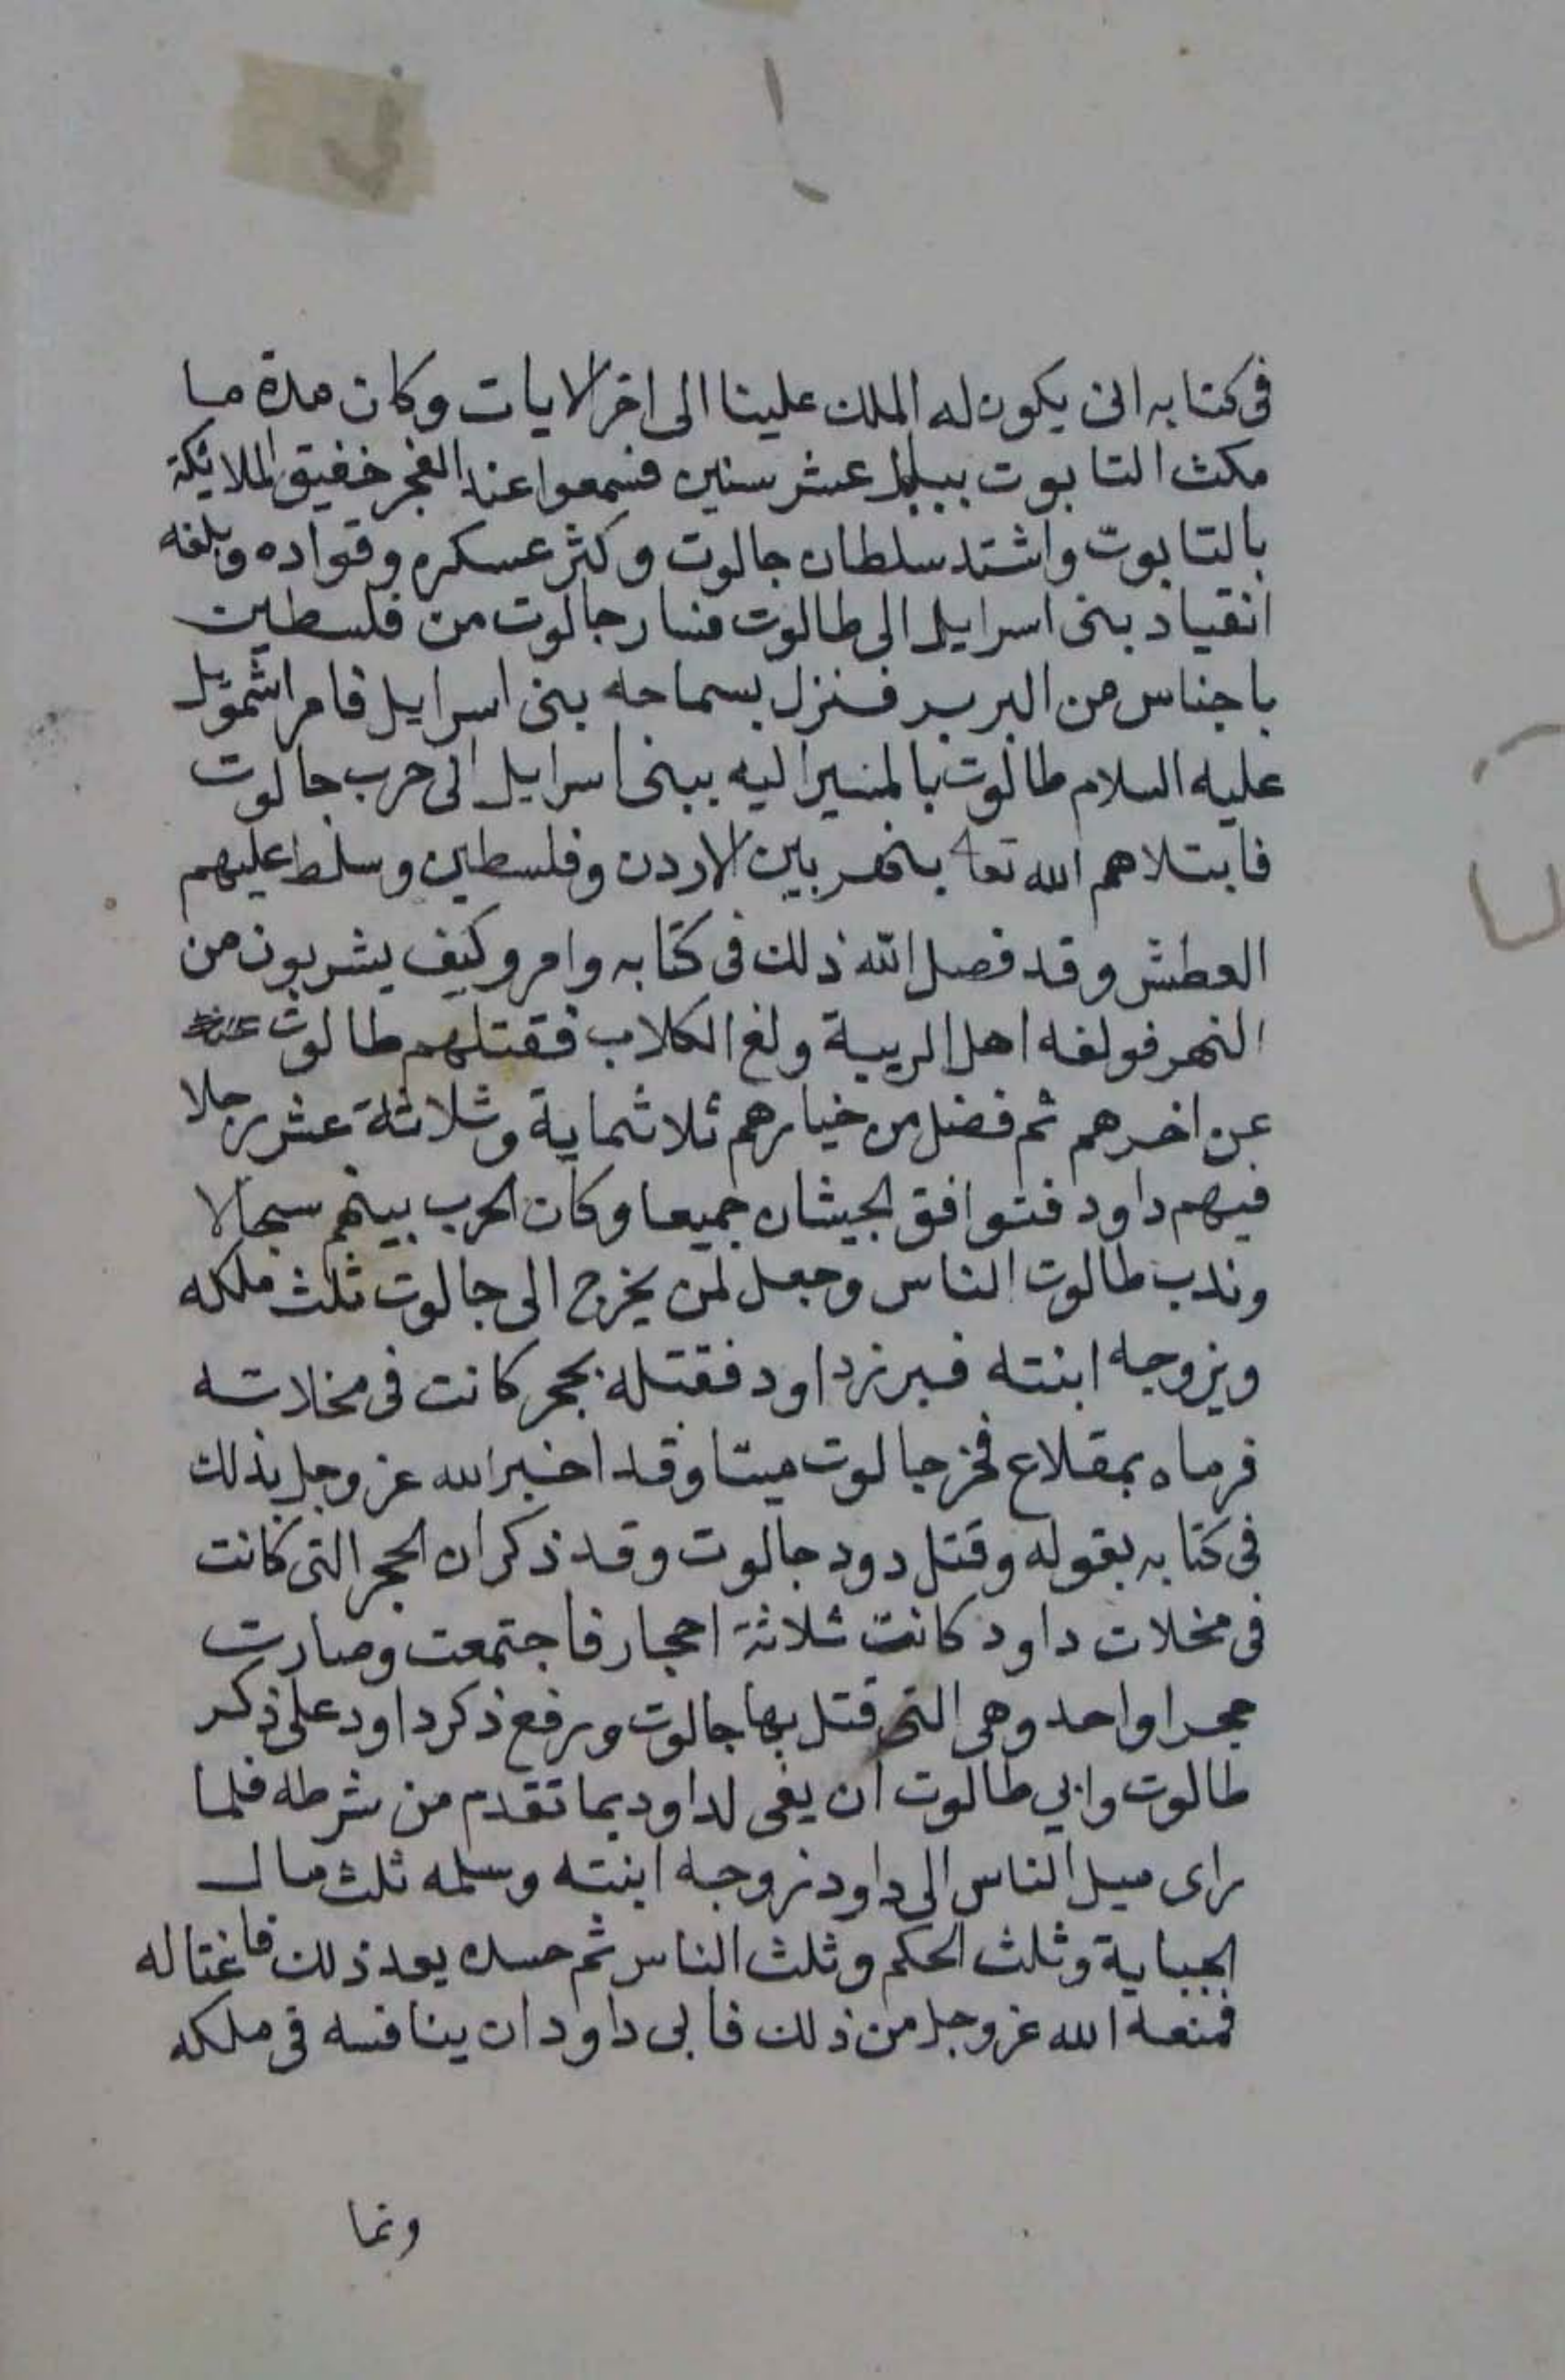 فى كتابه انى يكون له الملك علينا الى اخر الايات وكان مدة ما
مكث التابوت ببابل عشر سنين فسمعوا عند الفجر خفيق الملايكة
بالتابوت واشتد سلطان جالوت وكثر عسكره وقواده وبلغه
انقياد بنى اسرايل الى طالوت فسار جالوت من فلسطين
باجناس من البربر فنزل بسماحه بنى اسرايل فامر اشمويل
عليه السلام طالوت بالمسير اليه ببنى اسرايل الى حرب جالوت
فابتلاهم الله تعا بنهر بين الاردن وفلسطين وسلط عليهم
العطش وقد فصل الله ذلك فى كتابه وامر وكيف يشربون من
النهر فولغه اهل الريبة ولغ الكلاب فقتلهم طالوت
عن اخرهم ثم فضل من خيارهم ثلاثماية وثلاثة عشر رجلا
فيهم داود فتوافق الجيشان جميعا وكان الحرب بينهم سجالا
وندب طالوت الناس وجعل لمن يخرج الى جالوت ثلث ملكه
ويزوجه ابنته فبرز داود فقتله بحجر كانت فى مخلاته
فرماه بمقلاع فخر جالوت ميتا وقد اخبر الله عز وجل بذلك
فى كتابه بقوله وقتل دود جالوت وقد ذكر ان الحجر التى كانت
فى مخلات داود كانت ثلاثة احجار فاجتمعت وصارت
حجرا واحد وهى التى قتل بها جالوت ورفع ذكر داود على ذكر
طالوت وابي طالوت ان يفى لداود بما تقدم من شرطه فلما
راى ميل الناس الى داود زوجه ابنته وسلمه ثلث مال
الجباية وثلث الحكم وثلث الناس ثم حسده بعد ذلك فاغتاله
فمنعه الله عز وجل من ذلك فابى داود ان ينافسه فى ملكه
ونما